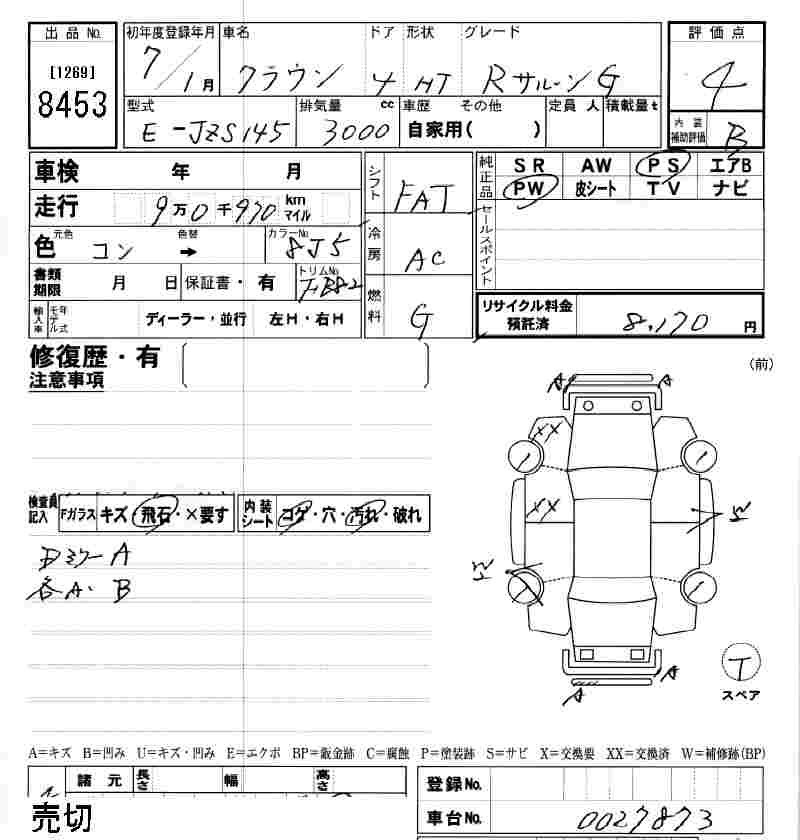 出品No.
[1269]
8453
初年度登録年月 車名 ドア 形状 グレード
7/1月 クラウン 4 HT RサルーンG
型式 排気量 cc 車歴 その他 定員 人 積載量 t
E-JZS145 3000 自家用( )
評価点
4
内装補助評価 B
車検 年 月
走行 9万0千970 km マイル
色 元色 コン 色替 → カラーNo 8J5
書類期限 月 日 保証書・有 トリムNo FB82
輸入車 モデル年式 ディーラー・並行 左H・右H
シフト FAT
冷房 AC
燃料 G
純正品 SR AW PS エアB
PW 皮シート TV ナビ
セールスポイント
リサイクル料金預託済 8,170 円
修復歴・有
注意事項
(前)
検査員記入 Fガラス キズ・飛石・×要す 内装シート コゲ・穴・汚れ・破れ
Dミラー A
各A・B
A A
XX
XX
W
W
A A
T
スペア
A=キズ B=凹み U=キズ・凹み E=エクボ BP=鈑金跡 C=腐蝕 P=塗装跡 S=サビ X=交換要 XX=交換済 W=補修跡(BP)
諸元 長さ 幅 高さ
売切
登録No.
車台No. 0027873